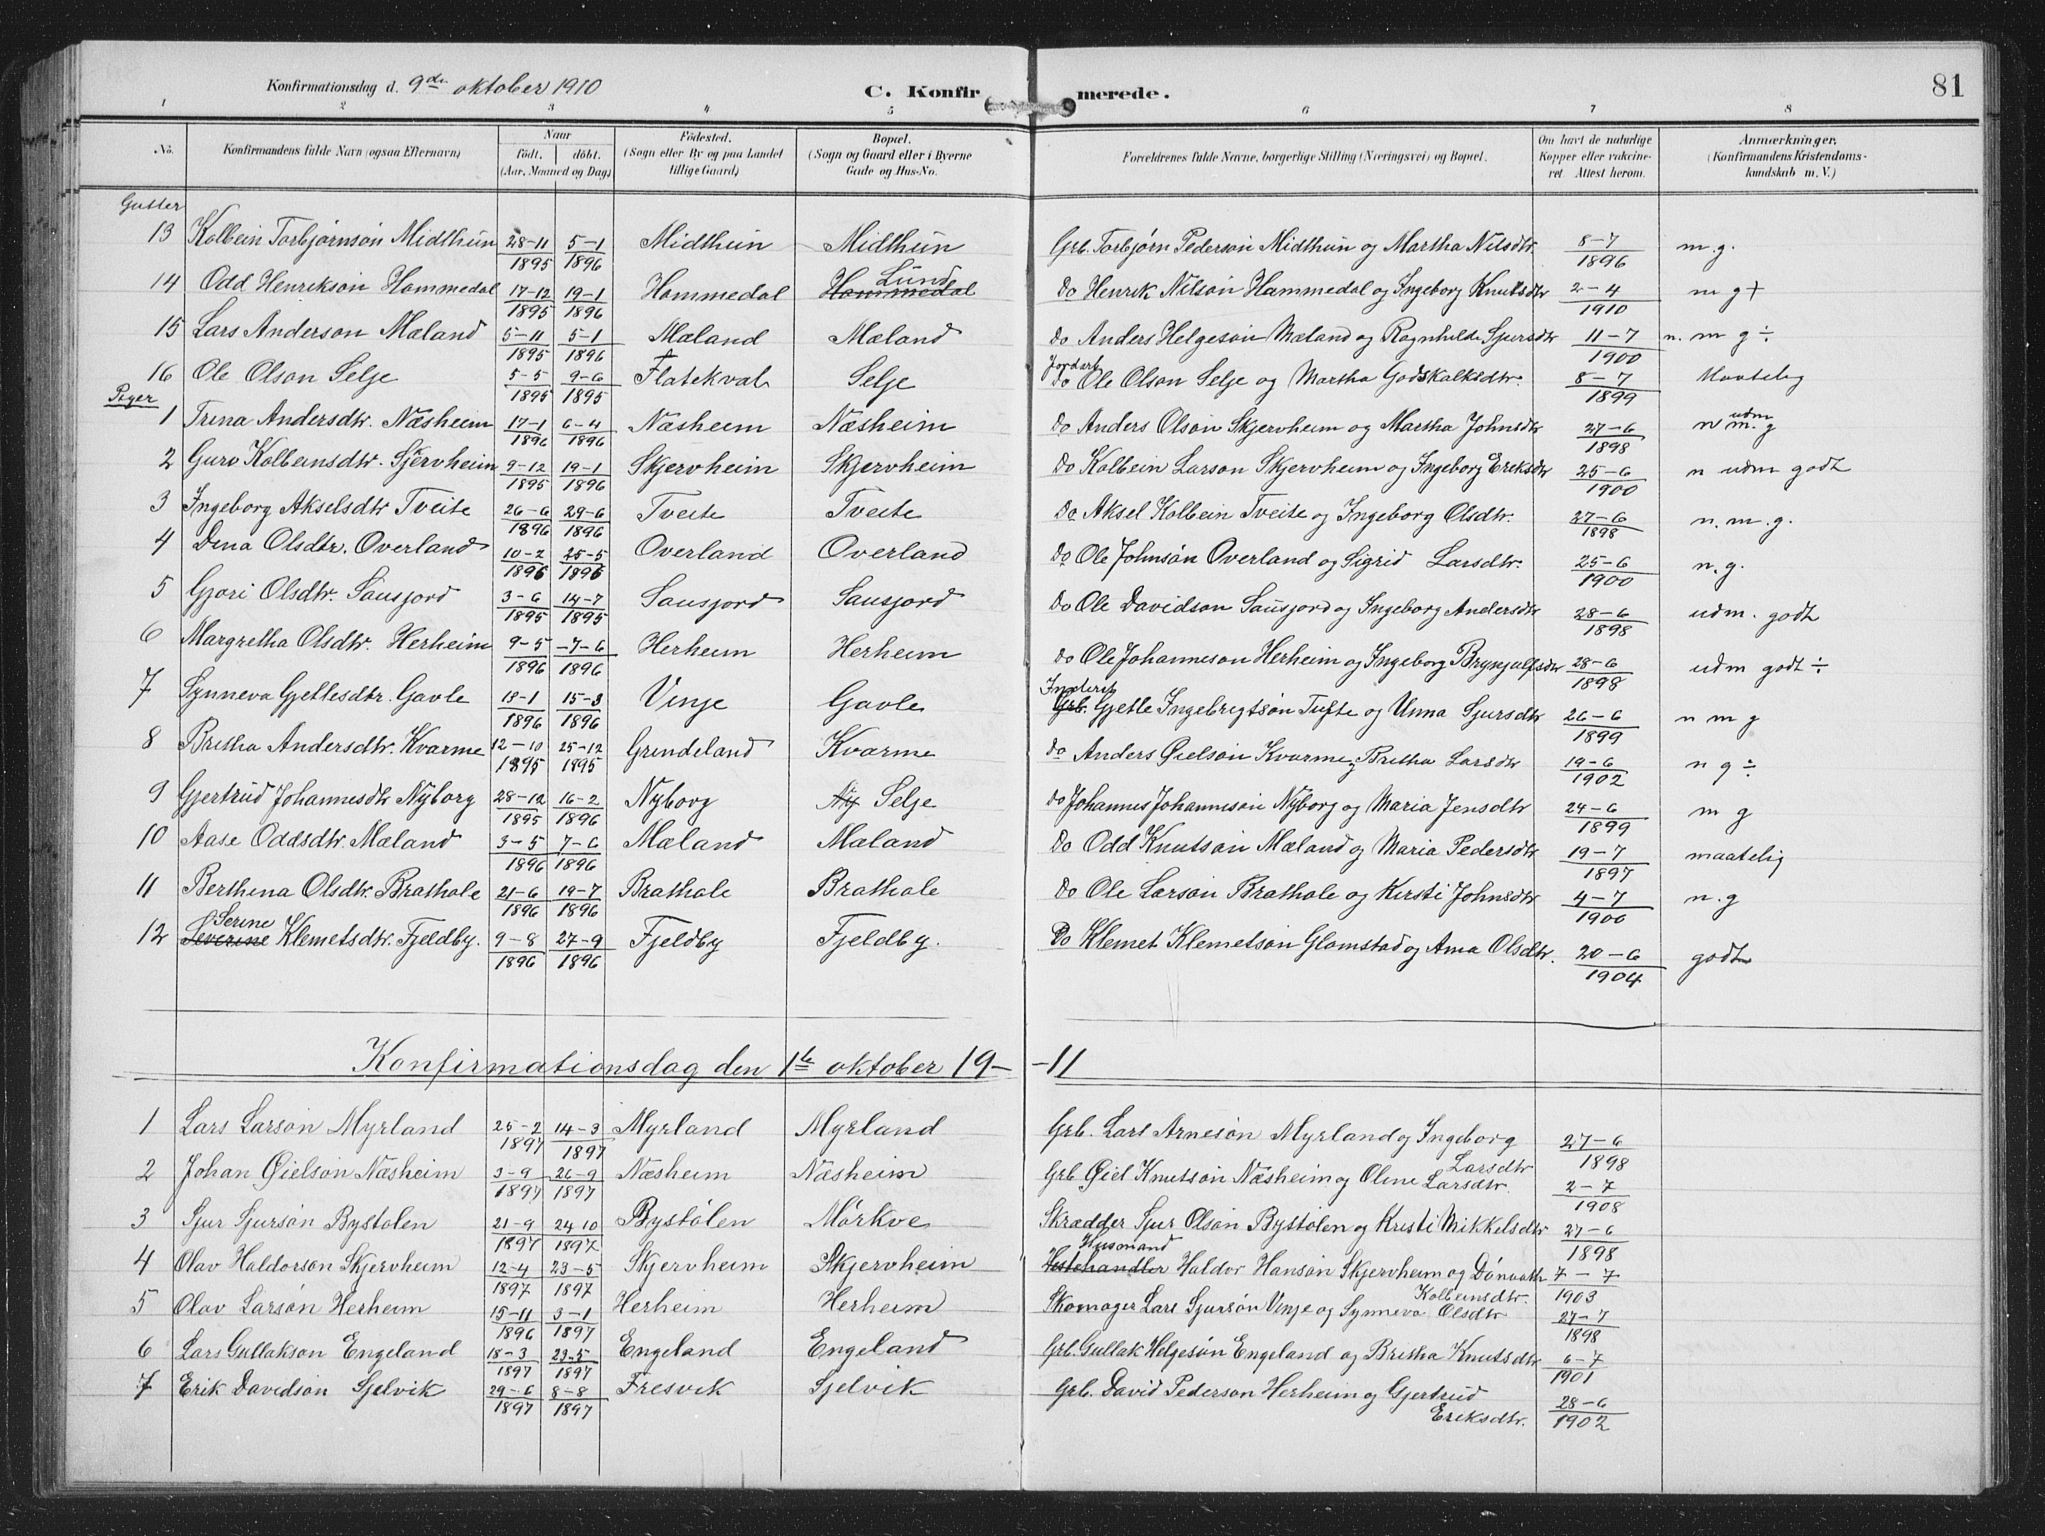 Konfirmationsdag d. 9de oktober 1910 C. Konfirmerede. 81
1 2 3 4 5 6 7 8
No. Konfirmandens fulde Navn (ogsaa Efternavn) Naar födt. döbt. (Aar, Maaned og Dag) Födested. (Sogn eller By og paa Landet tillige Gaard) Bopæl. (Sogn og Gaard eller i Byerne Gade og Hus-No. Forældrenes fulde Navne, borgerlige Stilling (Næringsvei) og Bopæl. Om havt de naturlige Kopper eller vakcineret. Attest herom. Anmærkninger. (Konfirmandens Kristendomskundskab m. V.)
Gutter
13 Kolbein Torbjørnson Midthun 28-11 1895 5-1 1896 Midthun Midthun Grb. Torbjørn Pederson Midthun og Martha Nilsdtr. 8-7 1896 m.g.
14 Odd Henrikson Hammedal 17-12 1895 19-1 1896 Hammedal Hammedal Lund Do Henrik Nilson Hammedal og Ingeborg Knutsdtr 2-4 1910 m g +
15 Lars Anderson Mæland 5-11 1895 5-1 1896 Mæland Mæland Do Anders Helgeson Mæland og Ragnhilde Sjursdtr 11-7 1900 n. m g ÷
16 Ole Olson Selje 5-5 1895 9-6 1895 Flatekval Selje Do Ole Olson Selje og Martha Godskalksdtr. 8-7 1899 Maatelig
Piger
1 Trina Andersdtr. Næsheim 17-1 1896 6-4 1896 Næsheim Næsheim Do Anders Olson Skjervheim og Martha Johnsdtr 27-6 1898 n udm m.g
2 Guro Kolbeinsdtr. Sjervheim 9-12 1895 19-1 1896 Skjervheim Skjervheim Do Kolbein Larson Skjervheim og Ingeborg Eriksdtr 25-6 1900 n udm godt
3 Ingeborg Akselsdtr Tveite 26-6 1896 29-6 1896 Tveite Tveite Do Aksel Kolbein Tveite og Ingeborg Olsdtr. 27-6 1898 n. m. g.
4 Dina Olsdtr. Overland 10-2 1896 25-5 1896 Overland Overland Do Ole Johnson Overland og Sigrid Larsdtr. 25-6 1900 n. g.
5 Gjori Olsdtr. Sausjord 3-6 1895 14-7 1895 Sausjord Sausjord Do Ole Davidson Sausjord og Ingeborg Andersdtr 28-6 1898 udm. godt
6 Margretha Olsdtr. Herheim 9-5 1896 7-6 1896 Herheim Herheim Do Ole Johanneson Herheim og Ingeborg Brynjulfsdtr 28-6 1898 udm godt ÷
7 Synneva Gjettlesdtr. Gavle 18-1 1896 15-3 1896 Vinje Gavle Inderst Grb. Gjetle Ingebrigtson Tufte og Unna Sjursdtr 26-6 1899 n m g
8 Britha Andersdtr. Kvarme 12-10 1895 25-12 1895 Grindeland Kvarme Do Anders Øielson Kvarme og Britha Larsdtr 19-6 1902 n g ÷
9 Gjertrud Johannesdtr Nyborg 28-12 1895 16-2 1896 Nyborg Ny Selje Do Johannes Johanneson Nyborg og Maria Jensdtr 24-6 1899 m g
10 Aase Oddsdtr. Mæland 3-5 1896 7-6 1896 Mæland Mæland Do Odd Knutson Mæland og Maria Pedersdtr 19-7 1897 maatelig
11 Berthina Olsdtr. Brathole 21-6 1896 19-7 1896 Brathole Brathole Do Ole Larson Brathole og Kirsti Johnsdtr 4-7 1900 n. g
12 Severine Serine Klemetsdtr. Fjeldby. 9-8 1896 27-9 1896 Fjeldby Fjeldby. Do Klemet Klemetson Glomstad og Ama Olsdtr. 20-6 1904 godt
Konfirmationsdag den 1ste oktober 19--11
1 Lars Larson Myrland 25-2 1897 14-3 1897 Myrland Myrland Grb. Lars Arneson Myrland og Ingeborg Larsdtr 27-6 1898
2 Johan Øielson Næsheim 3-9 1897 26-9 1897 Næsheim Næsheim Grb Øiel Knutson Næsheim og Oline Larsdtr. 2-7 1908
3 Sjur Sjurson Bystølen 21-9 1897 24 10 1897 Bystølen Mørkve Skrædder Sjur Olson Bystølen og Kristi Mikkelsdtr 27-6 1898
4 Olav Haldorson Skjervheim 12-4 1897 23-5 1897 Skjervheim Skjervheim Hestehandler Husmand Haldor Hanson Skjervheim og Dønvath Kolbeinsdtr. 7-7 1903
5 Olav Larson Herheim 15-11 1896 3-1 1897 Herheim Herheim Skomager Lars Sjurson Vinje og Synneva Olsdtr 27-7 1898
6 Lars Gullakson Engeland 18-3 1897 23-5 1897 Engeland Engeland Grb. Gullak Helgeson Engeland og Britha Knutsdtr 6-7 1901
7 Erik Davidson Sjelvik 29-6 1897 8-8 1897 Fresvik Sjelvik Grb. David Pederson Herheim og Gjertrud Eriksdtr. 28-6 1902